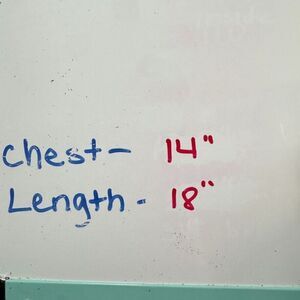 Chest - 14"
Length - 18"